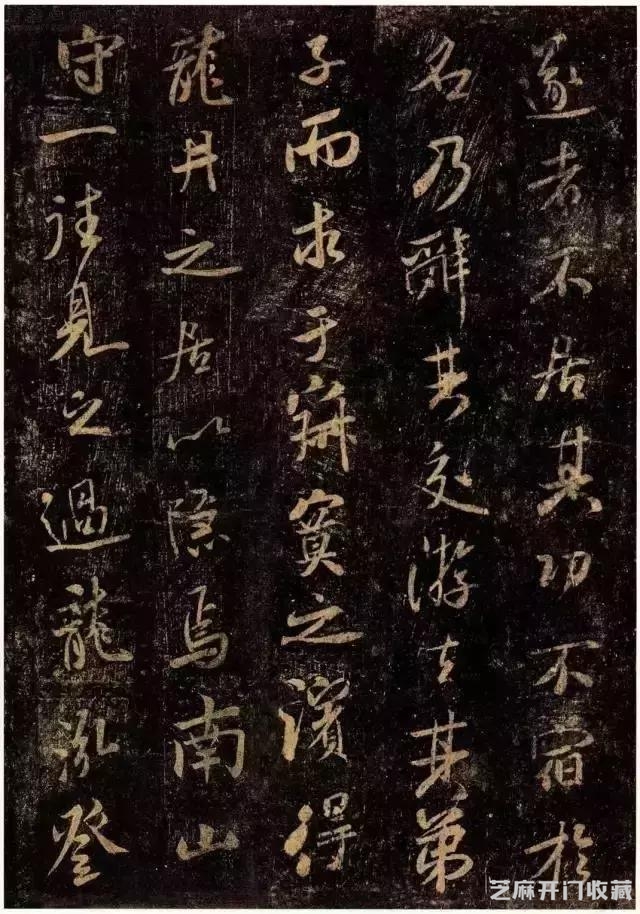 遂者不居其功不宿於
名乃辭其交游去其弟
子而求于寂寞之濱得
龍井之居以隱焉南山
守一往見之過龍泓登
芝麻开门收藏